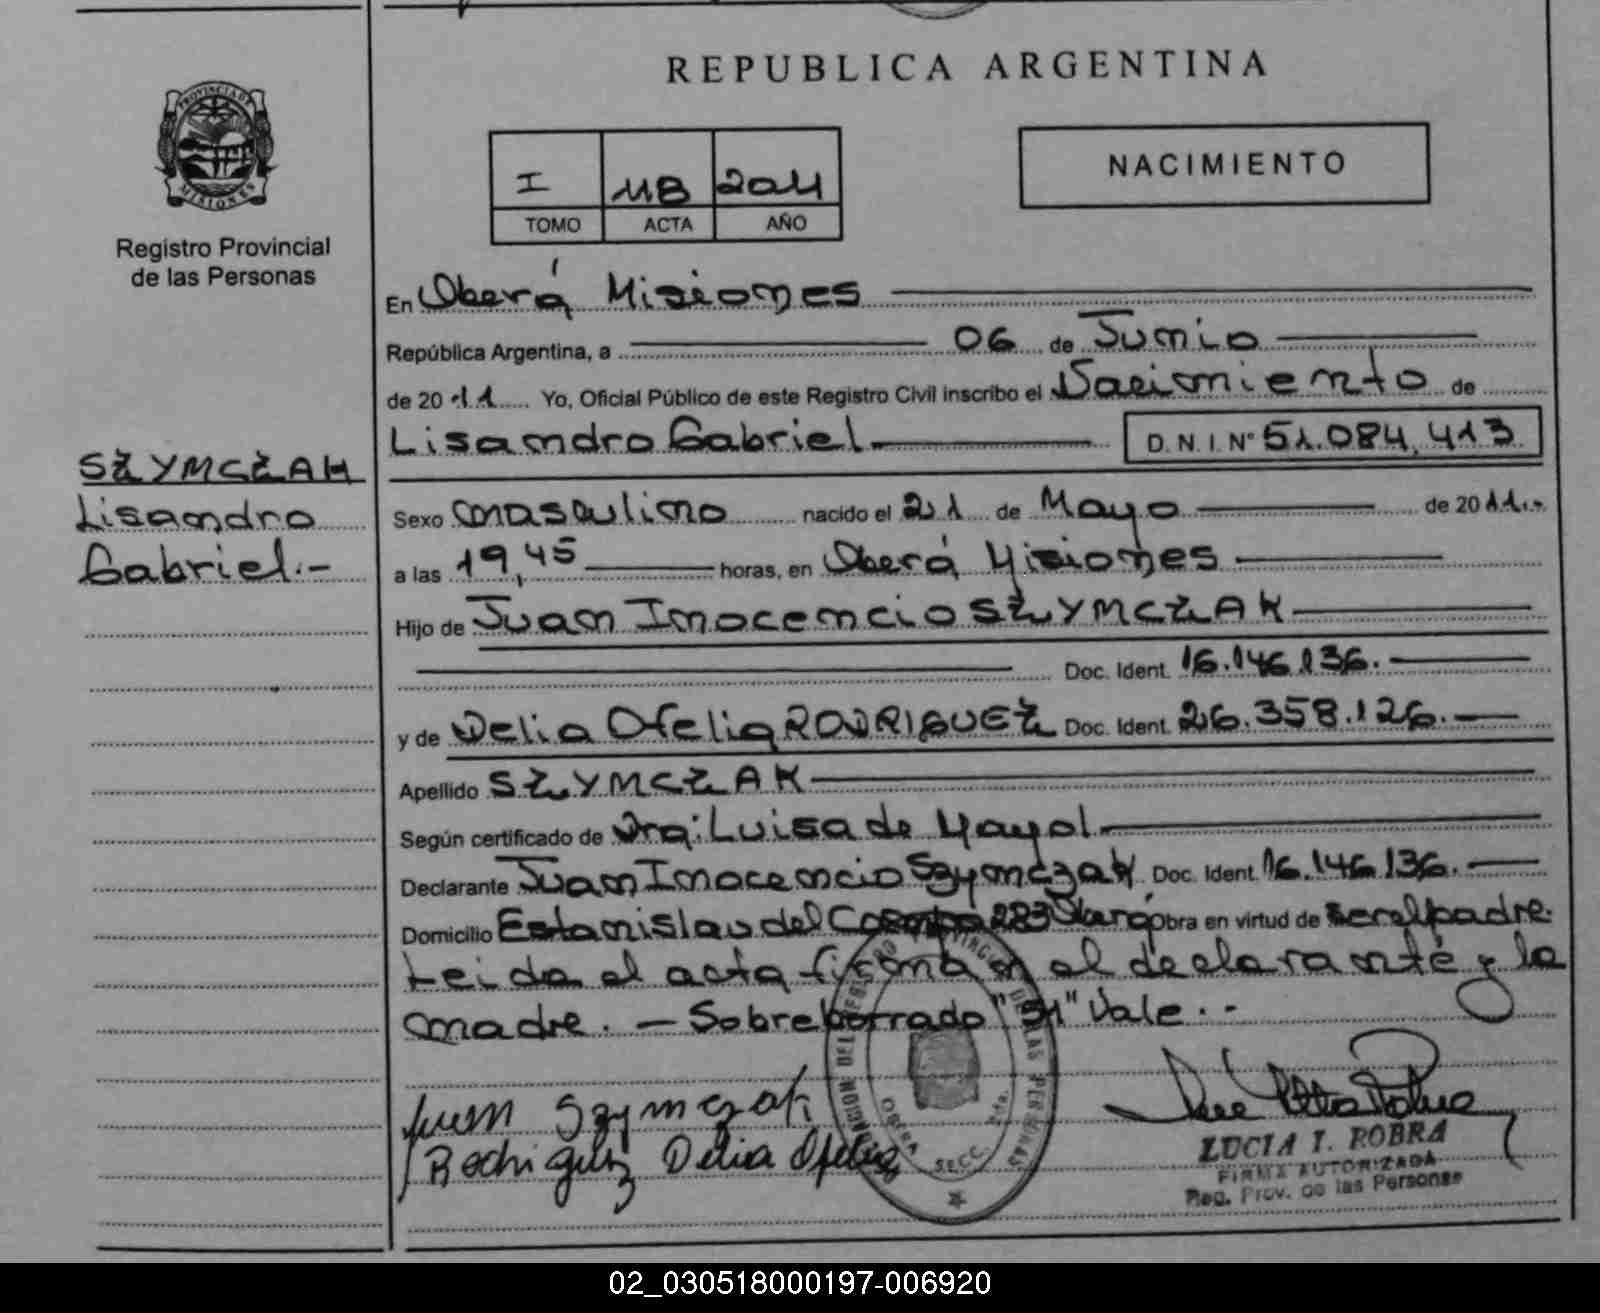 REPUBLICA ARGENTINA
PROVINCIA DE
MISIONES
Registro Provincial
de las Personas
I 118 2011
TOMO ACTA AÑO
NACIMIENTO
En Oberá Misiones
República Argentina, a 06 de Junio
de 2011 Yo, Oficial Público de este Registro Civil inscribo el Nacimiento de
Lisandro Gabriel D. N. I. N° 51.084.413
SZYMCZAK
Lisandro
Gabriel.-
Sexo masculino nacido el 21 de Mayo de 2011.
a las 19,45 horas, en Oberá Misiones
Hijo de Juan Inocencio SZYMCZAK
Doc. Ident. 16.146.136.
y de Delia Ofelia RODRIGUEZ Doc. Ident. 26.358.126.
Apellido SZYMCZAK
Según certificado de Dra: Luisa de Mayol.
Declarante Juan Inocencio Szymczak Doc. Ident. 16.146.136.
Domicilio Estanislau del Campo 283 Oberá obra en virtud de ser el padre.
Leida el acta firma n el declarante y la
madre. - Sobreborrado "51" Vale.-
Juan Szymczak
Rodriguez Delia Ofelia
LUCIA I. ROBRA
FIRMA AUTORIZADA
Reg. Prov. de las Personas
02_030518000197-006920